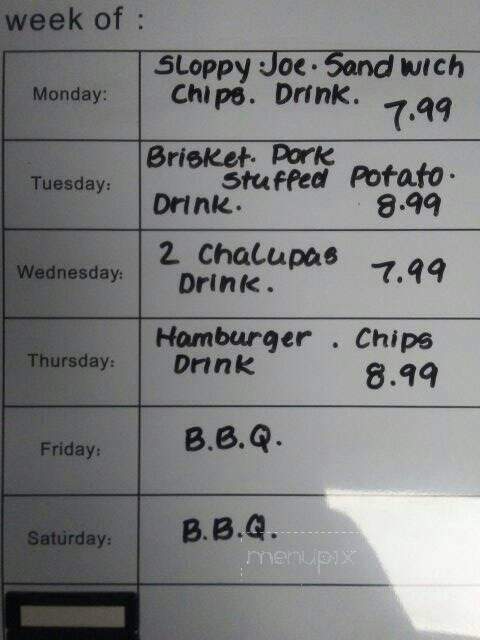 week of :
Monday:
Sloppy·Joe·Sandwich
Chips. Drink.
7.99
Tuesday:
Brisket. Pork
Stuffed Potato.
Drink. 8.99
Wednesday:
2 Chalupas
Drink. 7.99
Thursday:
Hamburger . Chips
Drink
8.99
Friday:
B.B.Q.
Saturday:
B.B.Q.
menupix